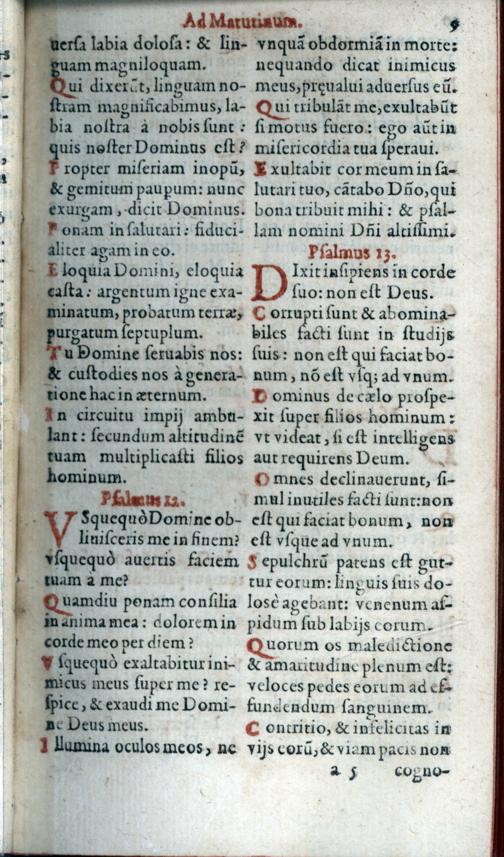 Ad Matutinum. 9
uersa labia dolosa: & lin-
guam magniloquam.
Qui dixerũt, linguam no-
stram magnificabimus, la-
bia nostra à nobis sunt:
quis noster Dominus est?
Propter miseriam inopũ,
& gemitum paupum: nunc
exurgam, dicit Dominus.
Ponam in salutari: fiduci-
aliter agam in eo.
Eloquia Domini, eloquia
casta: argentum igne exa-
minatum, probatum terræ,
purgatum septuplum.
Tu Domine seruabis nos:
& custodies nos à genera-
tione hac in æternum.
In circuitu impij ambu-
lant: secundum altitudinē
tuam multiplicasti filios
hominum.
Psalmus 12.
VSquequò Domine ob-
liuisceris me in finem?
vsquequò auertis faciem
tuam à me?
Quamdiu ponam consilia
in anima mea: dolorem in
corde meo per diem?
Vsquequò exaltabitur ini-
micus meus super me? re-
spice, & exaudi me Domi-
ne Deus meus.
Illumina oculos meos, ne
vnquã obdormiã in morte:
nequando dicat inimicus
meus, pręualui aduersus eũ.
Qui tribulãt me, exultabũt
si motus fuero: ego aũt in
misericordia tua speraui.
Exultabit cor meum in sa-
lutari tuo, cãtabo Dño, qui
bona tribuit mihi: & psal-
lam nomini Dñi altissimi.
Psalmus 13.
DIxit insipiens in corde
suo: non est Deus.
Corrupti sunt & abomina-
biles facti sunt in studijs
suis: non est qui faciat bo-
num, nõ est vsq; ad vnum.
Dominus de cælo prospe-
xit super filios hominum:
vt videat, si est intelligens
aut requirens Deum.
Omnes declinauerunt, si-
mul inutiles facti sunt: non
est qui faciat bonum, non
est vsque ad vnum.
Sepulchrũ patens est gut-
tur eorum: linguis suis do-
losè agebant: venenum as-
pidum sub labijs eorum.
Quorum os maledictione
& amaritudine plenum est:
veloces pedes eorum ad ef-
fundendum sanguinem.
Contritio, & infelicitas in
vijs eorũ, & viam pacis non
a 5 cogno-